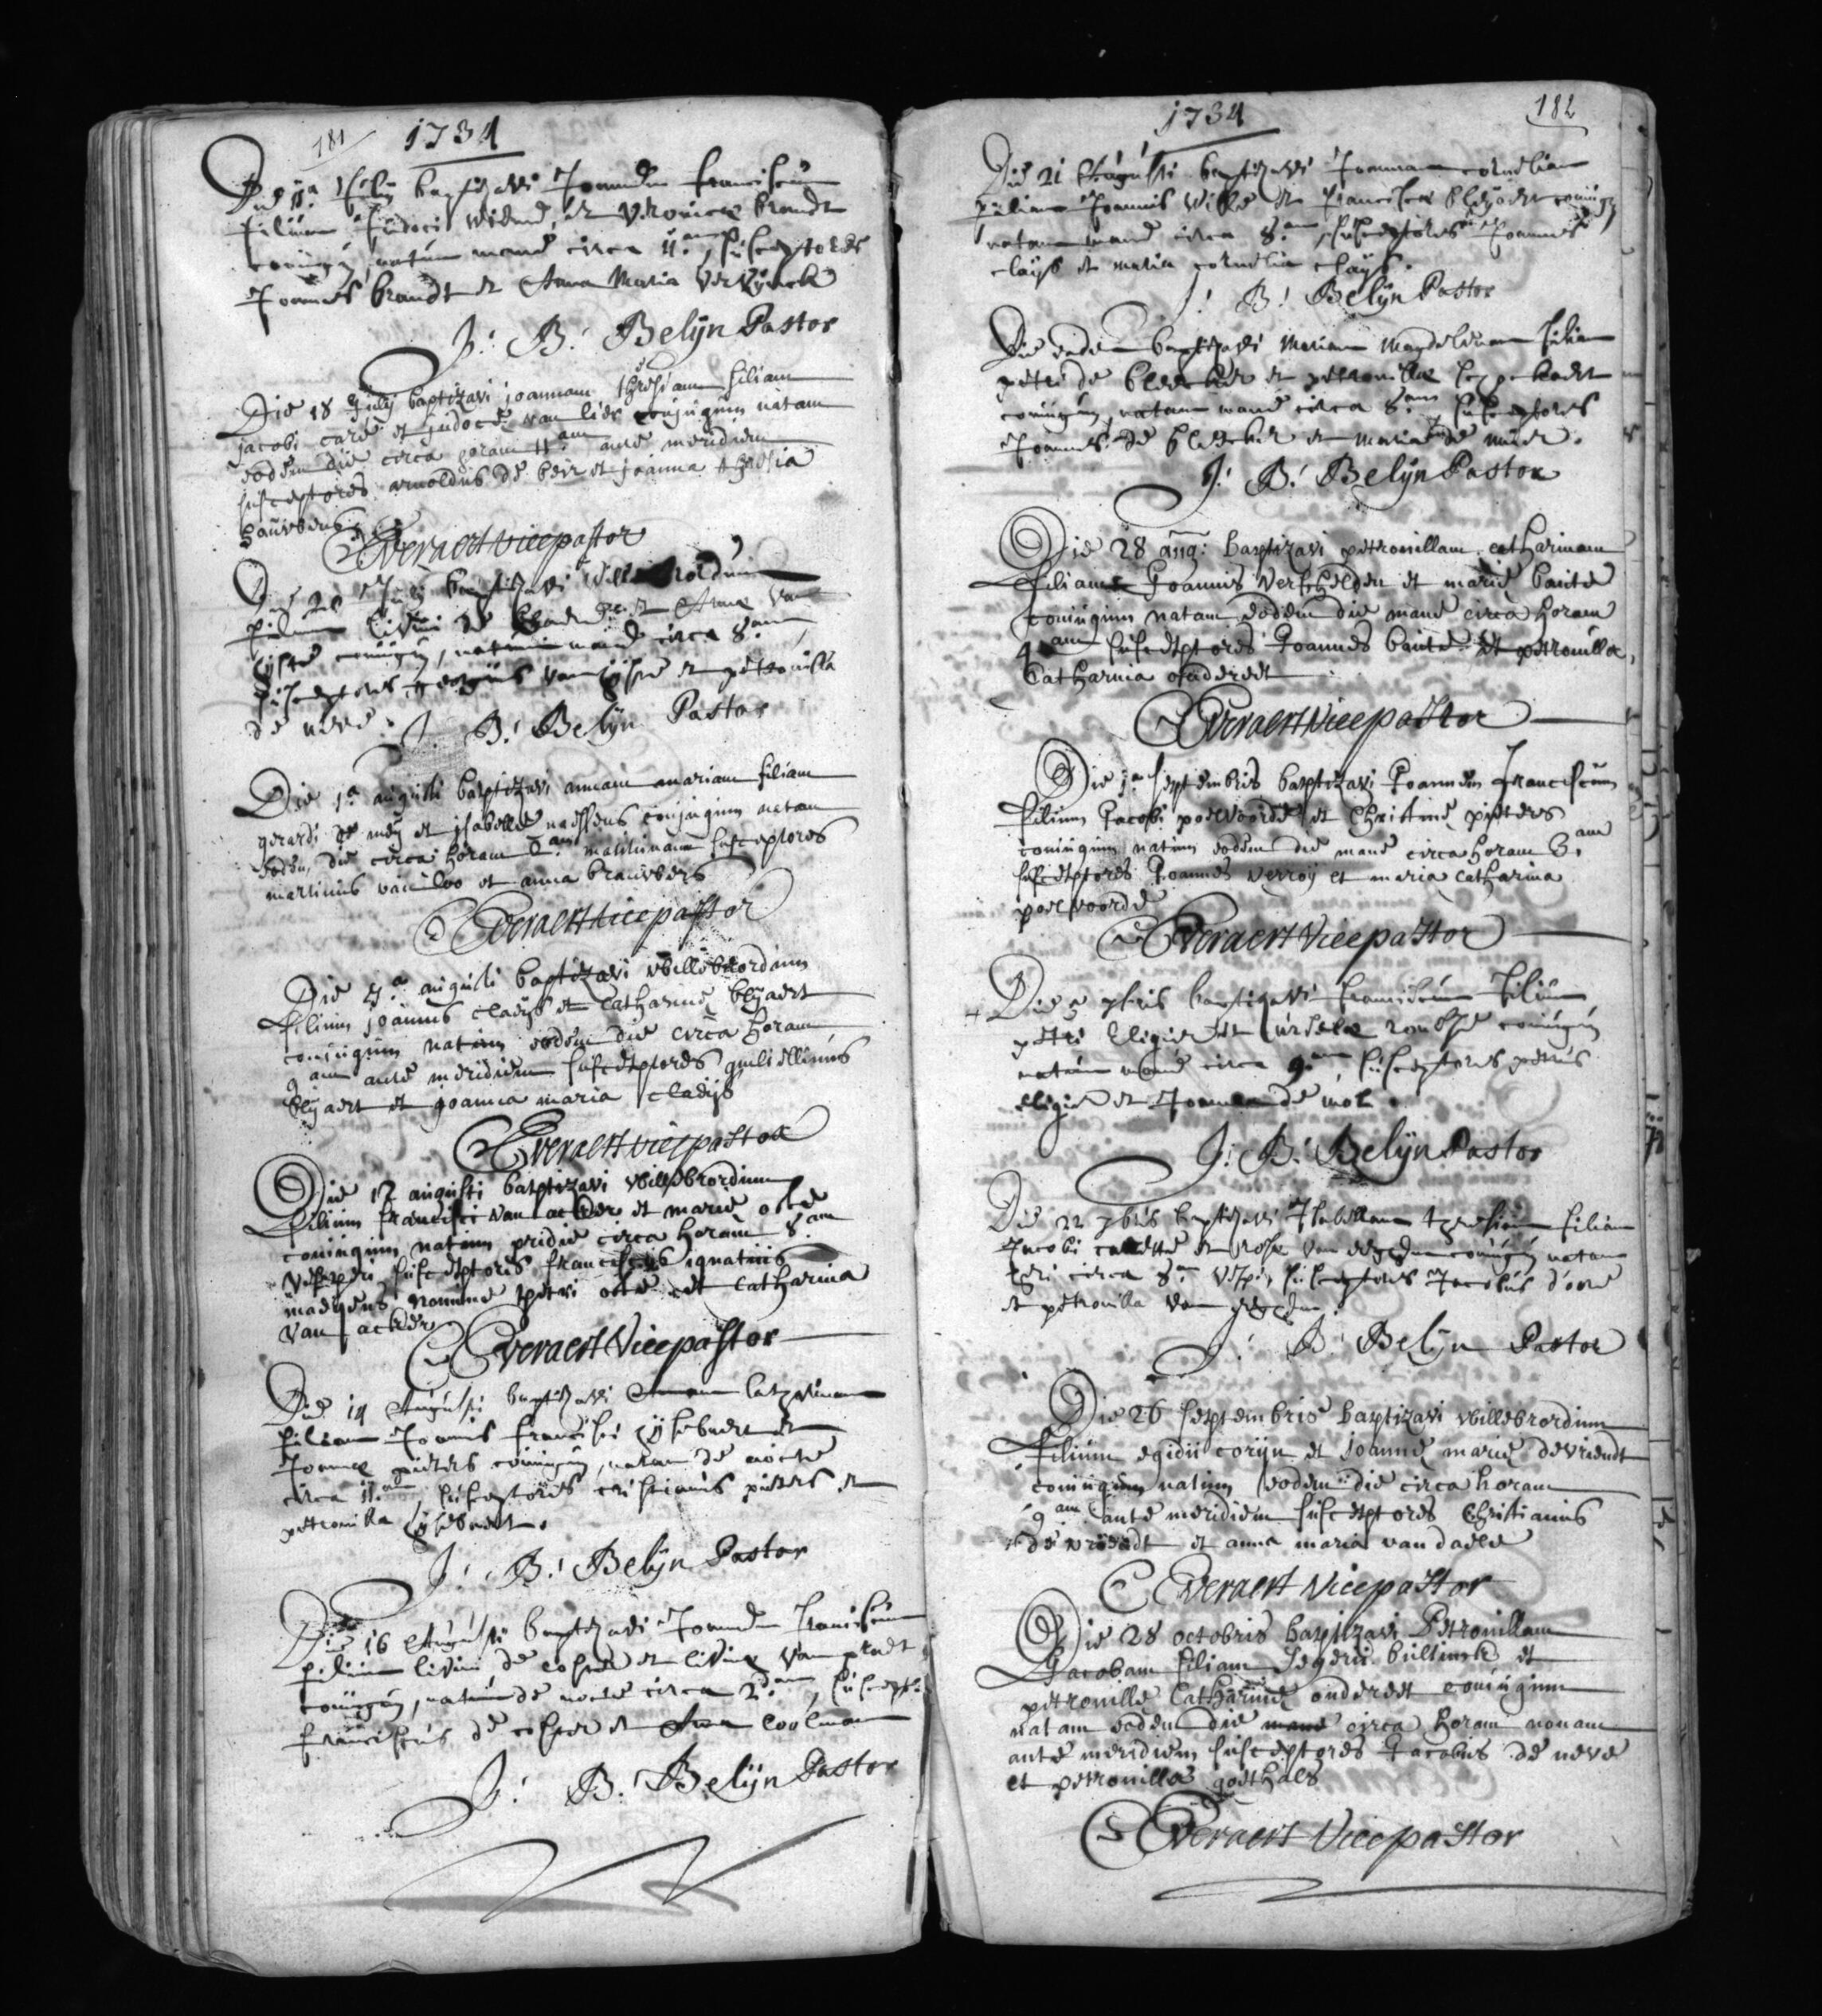 181
1734
Die 11.a Julij baptizavi Joannem franciscum
filium Judoci et Veronicæ brandt
coniugu, natum mane circa 4.am, susceptores
Joannes brandt et Anna Maria
J: B: Belijn Pastor
Die 18 Julij baptizavi joannam thresiam filiam
jacobi care et judocæ van lier conjugum natam
eodem die circa horam 11am ante meridiem
susceptores arnoldus de beir et joanna thresia
Everaert vicepastor
Die 20 Julij baptizavi
filium livini de et Annæ van
coniugu, natum mane circa 8.am,
susceptores georgius van et petronilla
de neve. J. B: Belijn Pastor
Die 1.a augusti baptizavi annam mariam filiam
gerardi de meij et jsabellæ naessens conjugum natam
eodem die circa horam am matutinam susceptores
martinus van loo et anna brauwers
Everaert vicepastor
Die 7.a augusti baptizavi willebrordum
filium joannis claeijs et Catharinæ blijaert
coniugum natum eodem die circa horam
9am ante meridiem susceptores guilielmus
blijaert et joanna maria claeijs
Everaert vicepastor
Die 12 augusti baptizavi willebrordum
filium francisci van acker et mariæ otte
coniugum natum pridie circa horam 8.am
vesperi susceptores franciscus ignatius
nomine petri otte et Catharina
van acker
Everaert Vicepastor
Die 14 Augusti baptizavi Annam Catharinam
filiam Joannis francisci et
Joannæ pieters coniugu, natam de nocte
circa 11.am, susceptores cristianus pieters et
petronilla
J: B: Belijn Pastor
Die 16 Augusti baptizavi Joannem franciscum
filium livini de et livinæ van
coniugu, natum de nocte circa 2.dam, suscept:
franciscus de et Anna coolman
J: B: Belijn Pastor
182
1734
Die 21 Augusti baptizavi Joannam corneliam
filiam Joannis et franciscæ blijaert coniugu
natam mane circa 8.am, susceptores Joannes
claijs et maria cornelia claijs.
J: B: Belijn Pastor
Die eadem baptizavi Mariam Magdalenam filiam
petri de bleecker et petronillæ
coniugu, natam mane circa 8.am, susceptores
Joannes de bleecker et maria de muer.
J: B: Belijn Pastor
Die 28 aug: baptizavi petronillam catharinam
filiam Joannis verschelden et mariæ bauté
coniugum natam eodem die mane circa horam
4am susceptores Joannes bauté et petronilla
Catharina onderedt
Everaert Vicepastor
Die 1.a septembris baptizavi Joannem Franciscum
filium Jacobi poelvoorde et Christinæ pieters
coniugum natum eodem die mane circa horam 3.am
susceptores Joannes verroij et maria catharina
poelvoorde
Everaert Vicepastor
Die 5 7bris baptizavi franciscum filium
petri eligier et ursulæ coniugu
natum mane circa 9.am, susceptores petrus
eligier et Joanna de mol.
J: B: Belijn Pastor
Die 22 7bris baptizavi Isabellam thresiam filiam
Jacobi et rosæ van coniugu natam
heri circa 8.am vesp:, susceptores Jacobus d'oore
et petronilla van
J: B: Belijn Pastor
Die 26 septembris baptizavi willebrordum
filium egidii corijn et joannæ mariæ devriendt
coniugum natum eodem die circa horam
9am ante meridiem susceptores Christianus
de vriendt et anna maria van daele
Everaert Vicepastor
Die 28 octobris baptizavi Petronillam
Jacobam filiam Segeri bultinck et
petronillæ Catharinæ onderedt coniugum
natam eodem die mane circa horam nonam
ante meridiem susceptores Jacobus de neve
et petronilla goethals
Everaert Vicepastor